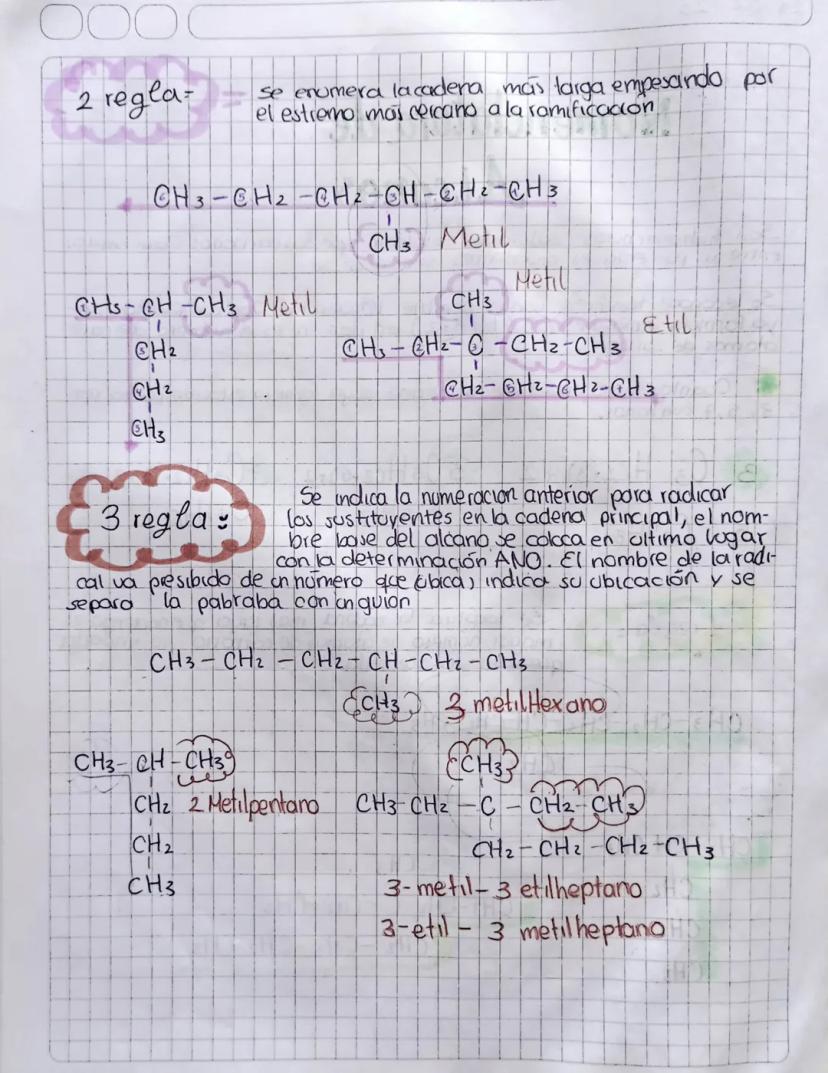 2 regla= = se enumera la cadena más larga empesando por
el estremo más cercano a la ramificación
CH3-CH2-CH2-CH-CH2-CH3
CH3 Metil
Metil
CH3-CH-CH3 Metil CH3
Etil
CH2 CH3-CH2-C-CH2-CH3
CH2 CH2-CH2-CH2-CH3
CH3
3 regla: Se indica la numeracion anterior para radicar
los sustituyentes en la cadena principal, el nom-
bre base del alcano se coloca en ultimo lugar
con la determinación ANO. El nombre de la radi-
cal va presibido de un número que (ubica) indica su ubicación y se
separa la pabraba con un guion
CH3-CH2-CH2-CH-CH2-CH3
CH3 3 metilHexano
CH3-CH-CH3 CH3
CH2 2 Metilpentano CH3-CH2-C-CH2-CH3
CH2 CH2-CH2-CH2-CH3
CH3 3-metil-3 etilheptano
3-etil-3 metilheptano